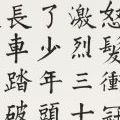 怒髮衝冠
激烈三十
了少年頭
長車踏破